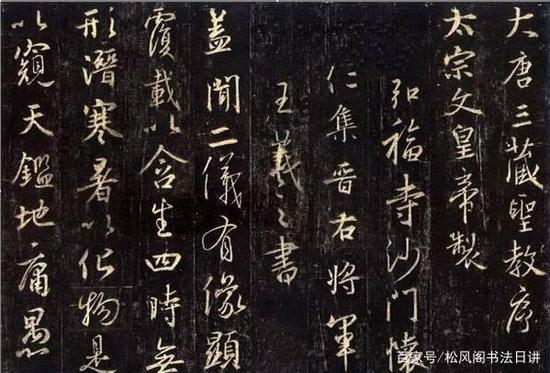 大唐三藏聖教序
太宗文皇帝製
弘福寺沙門懷
仁集晉右將軍
王羲之書
蓋聞二儀有像顯
覆載以含生四時無
形潛寒暑以化物是
以窺天鑑地庸愚
百家号/松风阁书法日讲